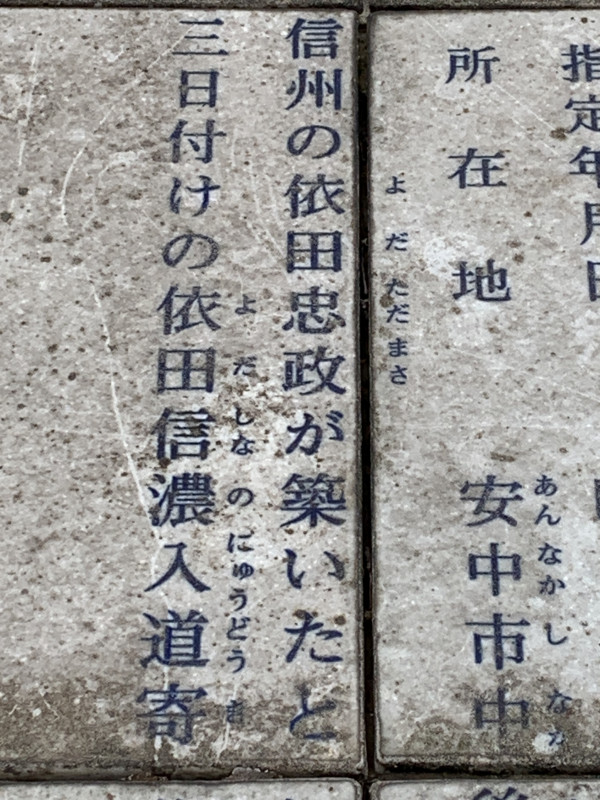 指定年月日
あんなかし なか
所在地 安中市中
よだただまさ
信州の依田忠政が築いたと
よだしなのにゅうどう
三日付けの依田信濃入道寄